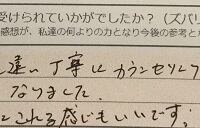 受けられていかがでしたか？（ズバリ
感想が、私達の何よりの力となり今後の参考と
遠い 丁寧に カウンセリング
なりました。
とれる感じもいいです。